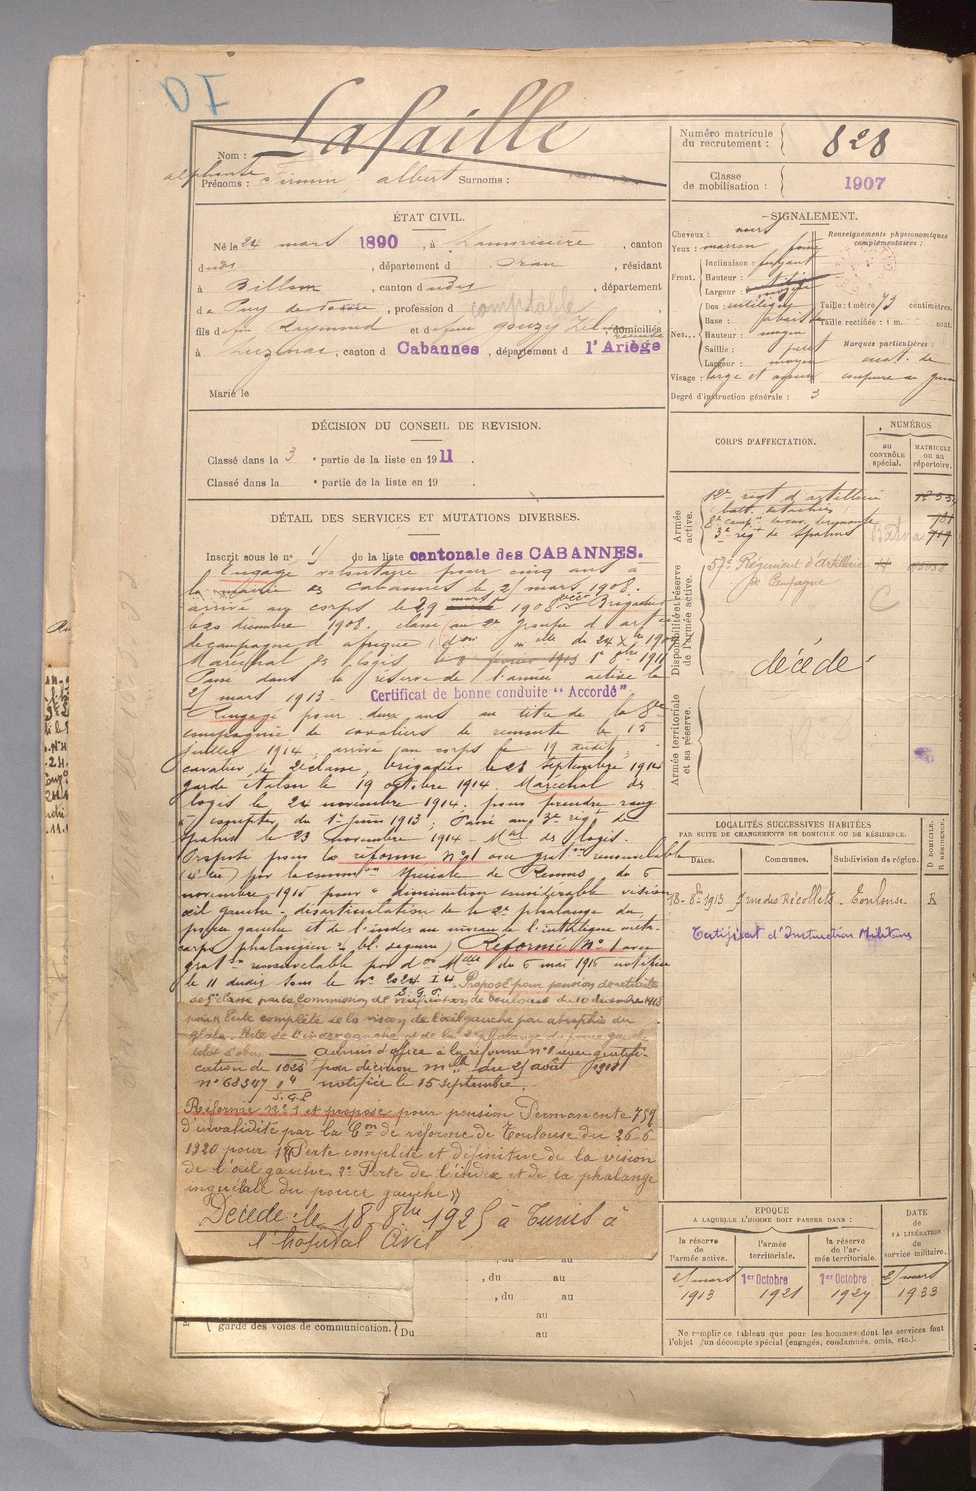 Nom : Lafaille
Prénoms : alphonse Firmin albert Surnoms :
Numéro matricule du recrutement : 828
Classe de mobilisation : 1907
ÉTAT CIVIL.
Né le 24 mars 1890, à Lamoricière, canton
dudit, département d Oran, résidant
à Billom, canton dudit, département
du Puy de Dôme, profession de comptable,
fils de feu Raymond et de feue gouzy, domiciliés
à Luzenac, canton d Cabannes, département d l'Ariège
Marié le
DÉCISION DU CONSEIL DE REVISION.
Classé dans la 3e partie de la liste en 1911.
Classé dans la e partie de la liste en 19 .
DÉTAIL DES SERVICES ET MUTATIONS DIVERSES.
Inscrit sous le n° 1 de la liste cantonale des CABANNES.
Engagé volontaire pour cinq ans à
la mairie des Cabannes le 21 mars 1908.
arrivé au corps le 29 mars 1908 Brigadier
le 20 décembre 1908. classé au 2e groupe d'art
de campagne d'afrique (don melle du 24 Xbre 1909)
Maréchal des logis le 3 février 1913
Passé dans la réserve de l'armée active le
21 mars 1913. Certificat de bonne conduite "Accordé"
Rengagé pour deux ans au titre de la 8e
compagnie de cavaliers de remonte le 15
juillet 1914, arrivé au corps le 19 dudit,
cavalier de 2e classe, brigadier le 23 septembre 1914
garde étalon le 19 octobre 1914, Maréchal des
logis le 24 novembre 1914; pour prendre rang
à compter du 1er juin 1913; Passé au 3e régt de
spahis le 23 novembre 1914 Mal des logis.
Proposé pour la réforme n° 1 avec graton renouvelable
par la common spéciale de Rennes du 6
novembre 1915 pour "diminution considérable vision
œil gauche - désarticulation de la 2e phalange du
pouce gauche et de l'index au niveau de l'interligne méta-
carpo phalangien" Réformé n° 1 avec
graton renouvelable par don Melle du 6 mai 1916 notifiée
le 11 dudit sous le N° 2024 I.G. Proposé pour pension de retraite
de 5e classe par la Commission de vérification de Toulouse du 10 décembre 1918
pour "Perte complète de la vision de l'œil gauche par atrophie du
globe. Perte de l'index gauche et de la 2e phalange du pouce gauche
éclat d'obus — admis d'office à la réforme n° 1 avec gratifi-
cation de 1025 par décision melle du 25 août 1918
n° 68347 S.G.P. notifiée le 15 septembre.
Réformé n° 1 et proposé pour pension Permanente 75%
d'invalidité par la Con de réforme de Toulouse du 26-6
1920 pour 1° "Perte complète et définitive de la vision
de l'œil gauche. 2° Perte de l'index et de la phalange
unguéale du pouce gauche"
Décédé le 18 8bre 1925 à Tunis à
l'hôpital Civil
, du au
, du au
au
garde des voies de communication. Du au
SIGNALEMENT.
Cheveux : noirs
Yeux : marron foncé
Front. Inclinaison : fuyant
Hauteur :
Largeur :
Nez. Dos : rectiligne
Base : abaissée
Hauteur : moyen
Saillie : petit
Largeur : moyen
Visage : large et osseux
Degré d'instruction générale : 3
Renseignements physionomiques complémentaires :
Taille : 1 mètre 73 centimètres.
Taille rectifiée : 1 m. cent.
Marques particulières :
cicat. de
coupure au
CORPS D'AFFECTATION.
NUMÉROS
au CONTRÔLE spécial.
MATRICULE ou au répertoire.
Armée active.
12e régt d'artillerie
(batt. détachées)
8e compie de cav. de remonte
3e régt de Spahis 719
Disponibilité et réserve de l'armée active.
57e Régiment d'Artillerie
de Campagne
C
décédé
Armée territoriale et sa réserve.
LOCALITÉS SUCCESSIVES HABITÉES
PAR SUITE DE CHANGEMENTS DE DOMICILE OU DE RÉSIDENCE.
Dates.
Communes.
Subdivision de région.
D DOMICILE.
R RÉSIDENCE.
18-8bre 1913 rue des Récollets Toulouse R
Certificat d'Instruction Militaire
EPOQUE
A LAQUELLE L'HOMME DOIT PASSER DANS :
la réserve de l'armée active.
l'armée territoriale.
la réserve de l'armée territoriale.
DATE de LA LIBÉRATION du service militaire.
21 mars 1913
1er Octobre 1921
1er Octobre 1927
21 mars 1933
Ne remplir ce tableau que pour les hommes dont les services font
l'objet d'un décompte spécial (engagés, condamnés, omis, etc.).